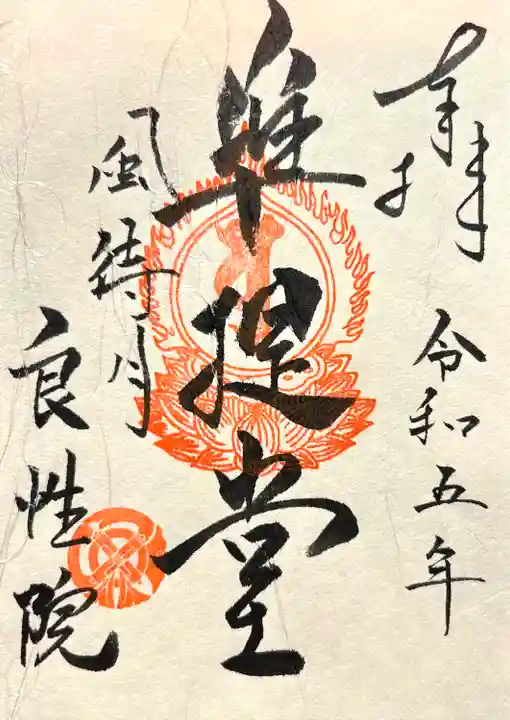 奉拝 令和五年
準提堂
風待月
良性院